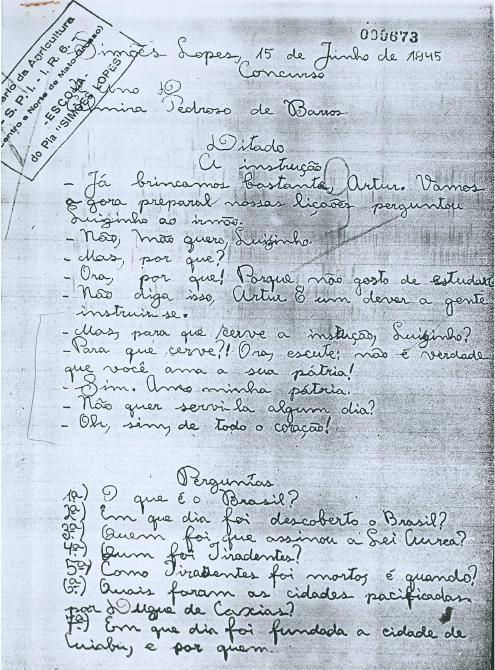 000673
da Agricultura
- S. P. I. - I. R. 6.
Centro e Norte de Mato Grosso)
-ESCOLA-
do Pia "SIMÕES LOPES"
Simões Lopes, 15 de Junho de 1945
Concurso
Pedroso de Barros
Ditado
A instrução
- Já brincamos bastante, Artur. Vamos
agora preparal nossas lições perguntou
Luizinho ao irmão.
- Não, não quero, Luizinho.
- Mas, por que?
- Ora, por que! Porque não gosto de estudar
- Não diga isso, Artur E um dever a gente
instruir-se.
- Mas, para que cerve a instução, Luizinho?
- Para que cerve?! Ora, escute: não é verdade
que você ama a sua pátria!
- Sim. Amo minha pátria.
- Não quer servi-la algum dia?
- Oh, sim, de todo o coração!
Perguntas
1ª) O que é o Brasil?
2ª) Em que dia foi descoberto o Brasil?
3ª) Quem foi que assinou a Lei Aurea?
4ª) Quem foi Tiradentes?
5ª) Como Tiradentes foi morto, é quando?
6ª) Quais foram as cidades pacificadas
por Duque de Caxias?
7ª) Em que dia foi fundada a cidade de
Cuiabu, e por quem.